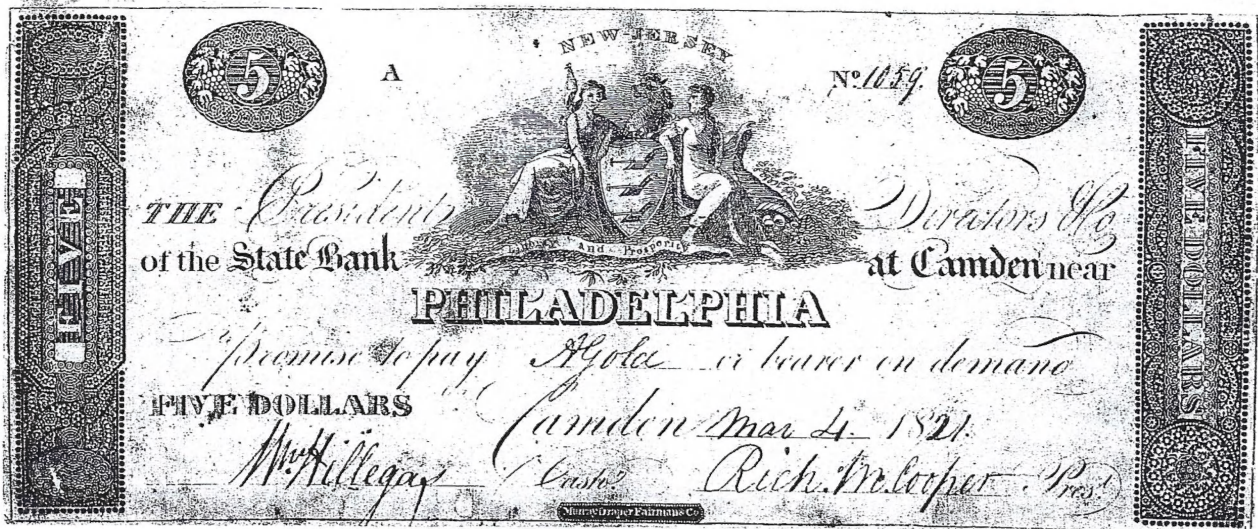 NEW JERSEY
5 A Nº 1059. 5
FIVE
THE President Directors &Co
Liberty And Prosperity
of the State Bank at Camden near
PHILADELPHIA
Promise to pay or bearer on demand
FIVE DOLLARS Camden Mar 4 1821.
Wm Hillegas Cashr. Rich. M. Cooper Prest.
Murray Draper Fairman & Co
FIVE DOLLARS